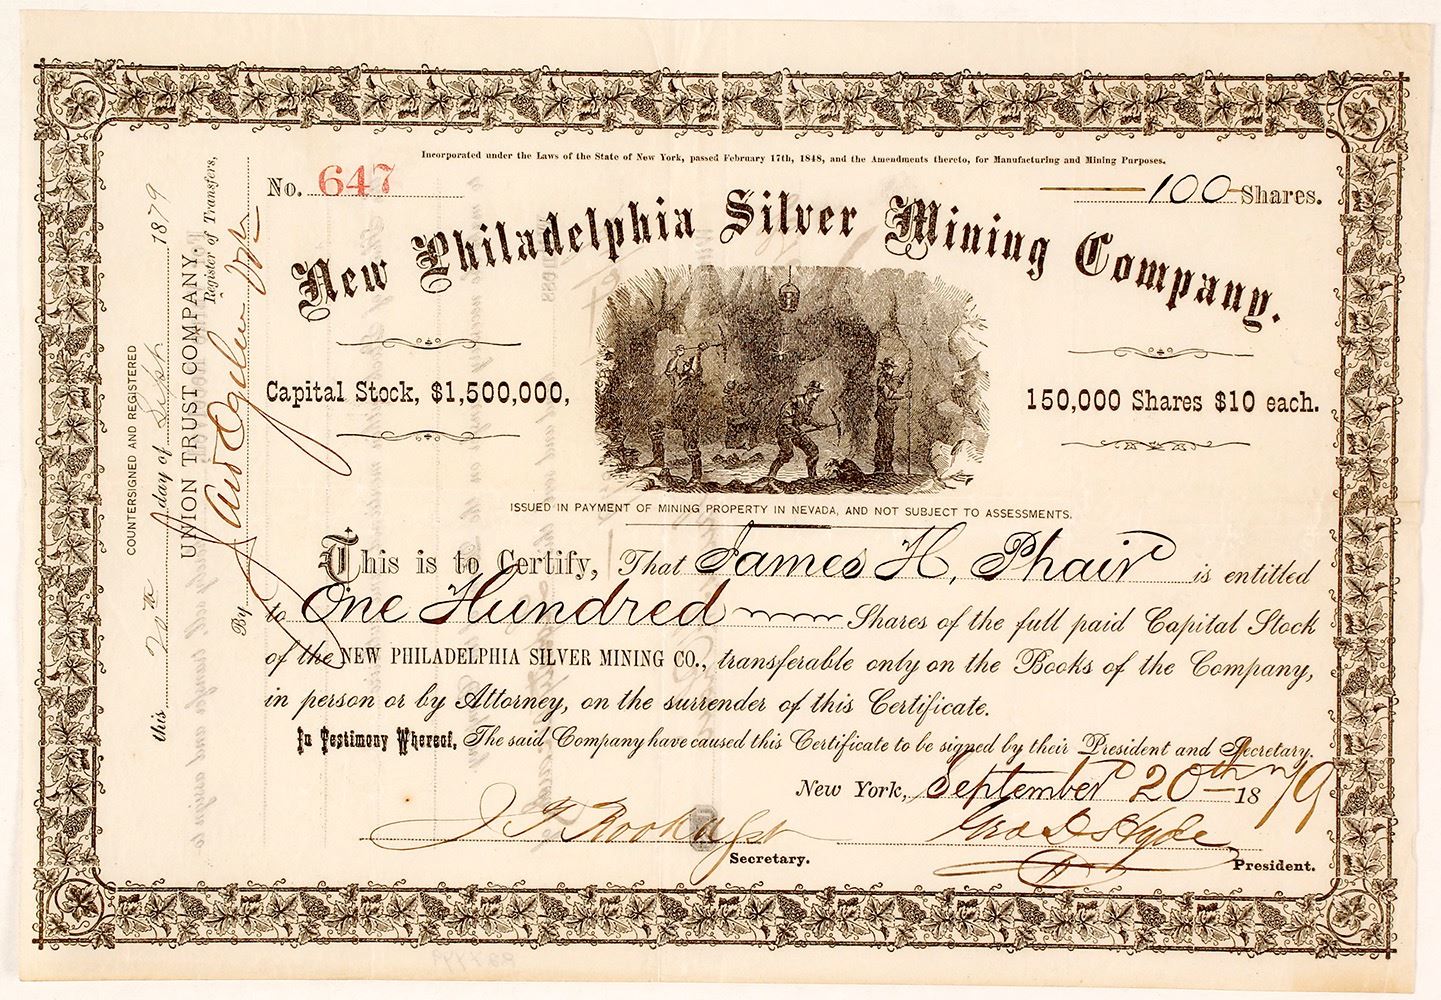 Incorporated under the Laws of the State of New York, passed February 17th, 1848, and the Amendments thereto, for Manufacturing and Mining Purposes.
No. 647
100 Shares.
New Philadelphia Silver Mining Company.
Capital Stock, $1,500,000,
150,000 Shares $10 each.
ISSUED IN PAYMENT OF MINING PROPERTY IN NEVADA, AND NOT SUBJECT TO ASSESSMENTS.
This is to Certify, That James H. Phair is entitled
to One Hundred Shares of the full paid Capital Stock
of the NEW PHILADELPHIA SILVER MINING CO., transferable only on the Books of the Company,
in person or by Attorney, on the surrender of this Certificate.
In Testimony Whereof, The said Company have caused this Certificate to be signed by their President and Secretary.
New York, September 20th 1879
Secretary.
Geo D Hyde
President.
COUNTERSIGNED AND REGISTERED
this 20th day of Sept 1879
UNION TRUST COMPANY,
Register of Transfers,
By